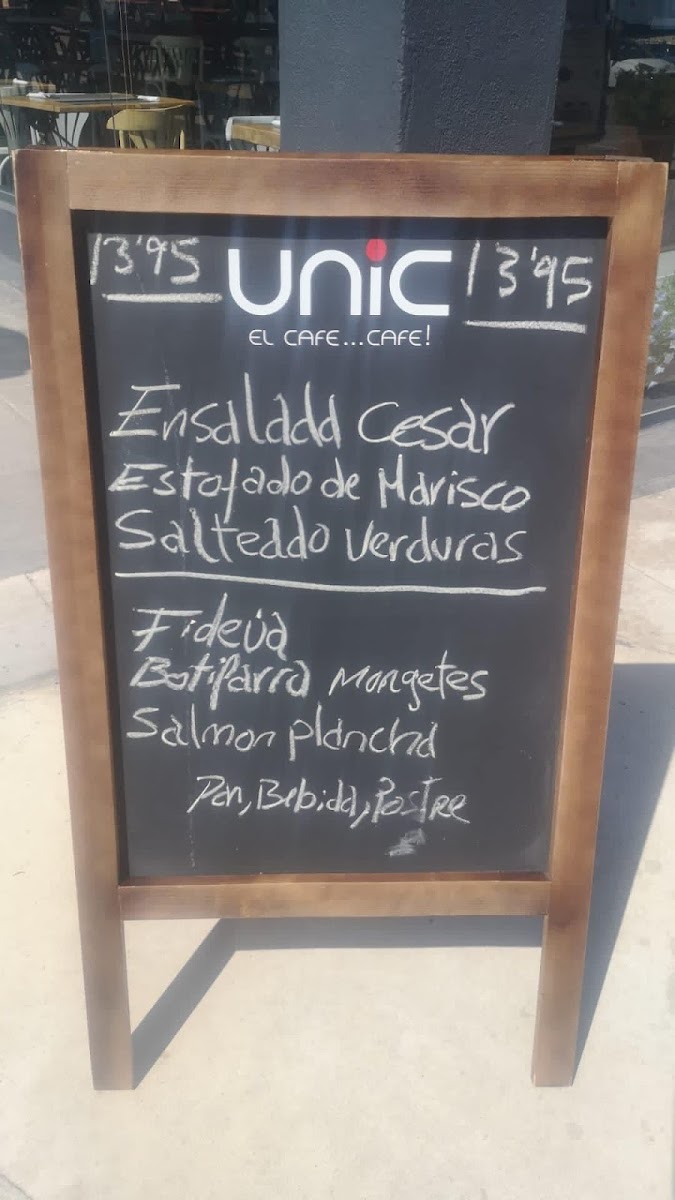 13'95 UNiC 13'95
EL CAFE...CAFE!
Ensalada Cesar
Estofado de Marisco
Salteado Verduras
Fideúa
Botifarra Mongetes
Salmon plancha
Pan, Bebida, Postre